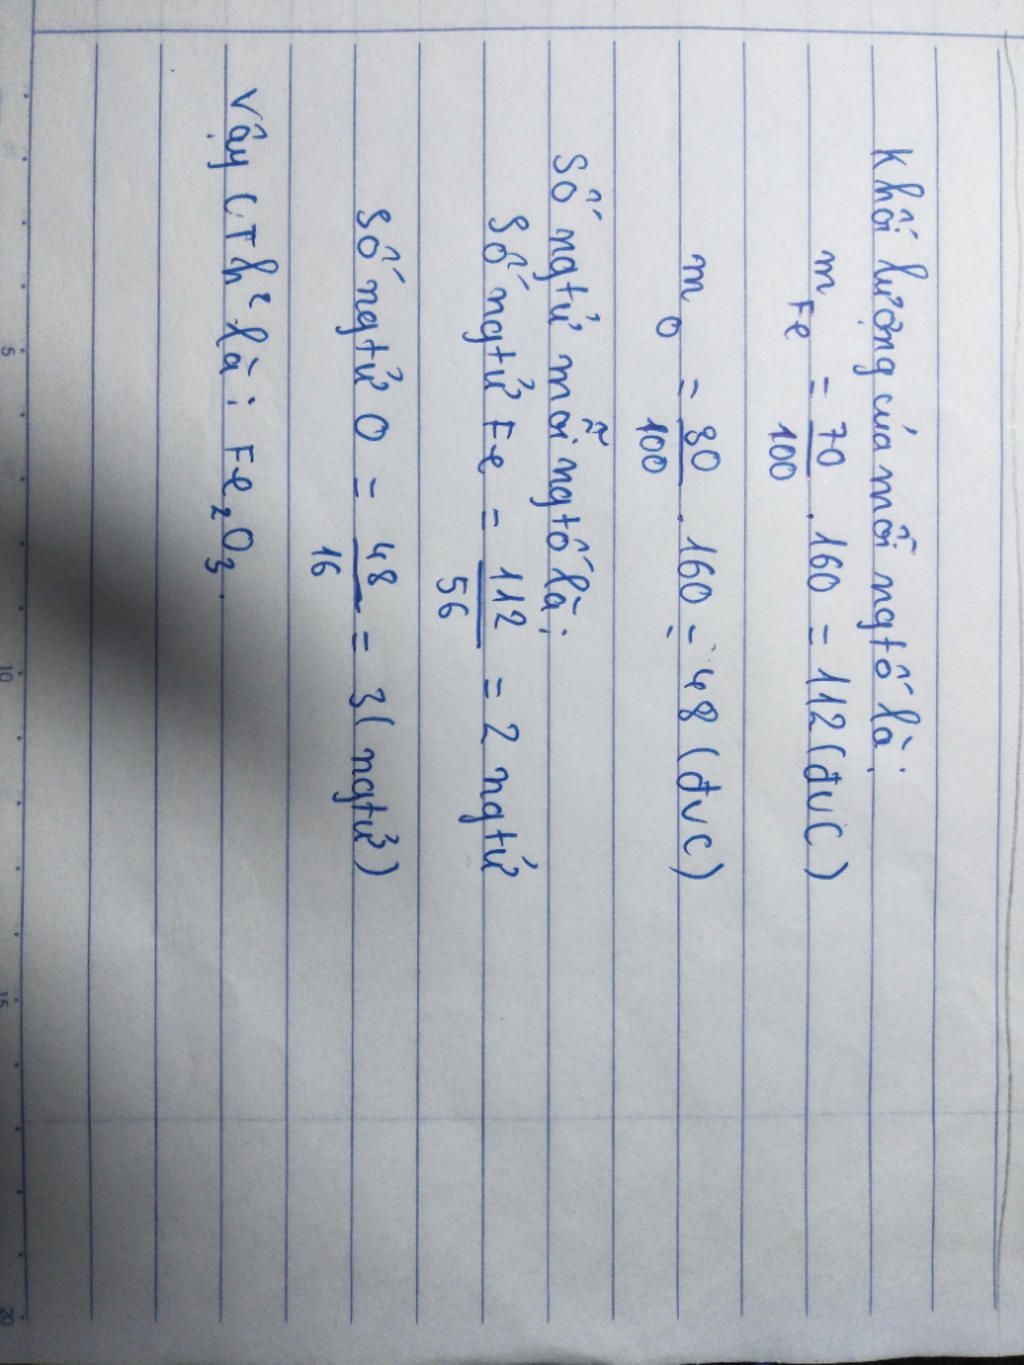 Khối lượng của mỗi ngtố là:
m Fe = 70/100 . 160 = 112 (đvC)
m O = 80/100 . 160 = 48 (đvC)
Số ngtử mỗi ngtố là:
Số ngtử Fe = 112/56 = 2 ngtử
Số ngtử O = 48/16 = 3 (ngtử)
Vậy CTh² là: Fe₂O₃.
5
10
15
20